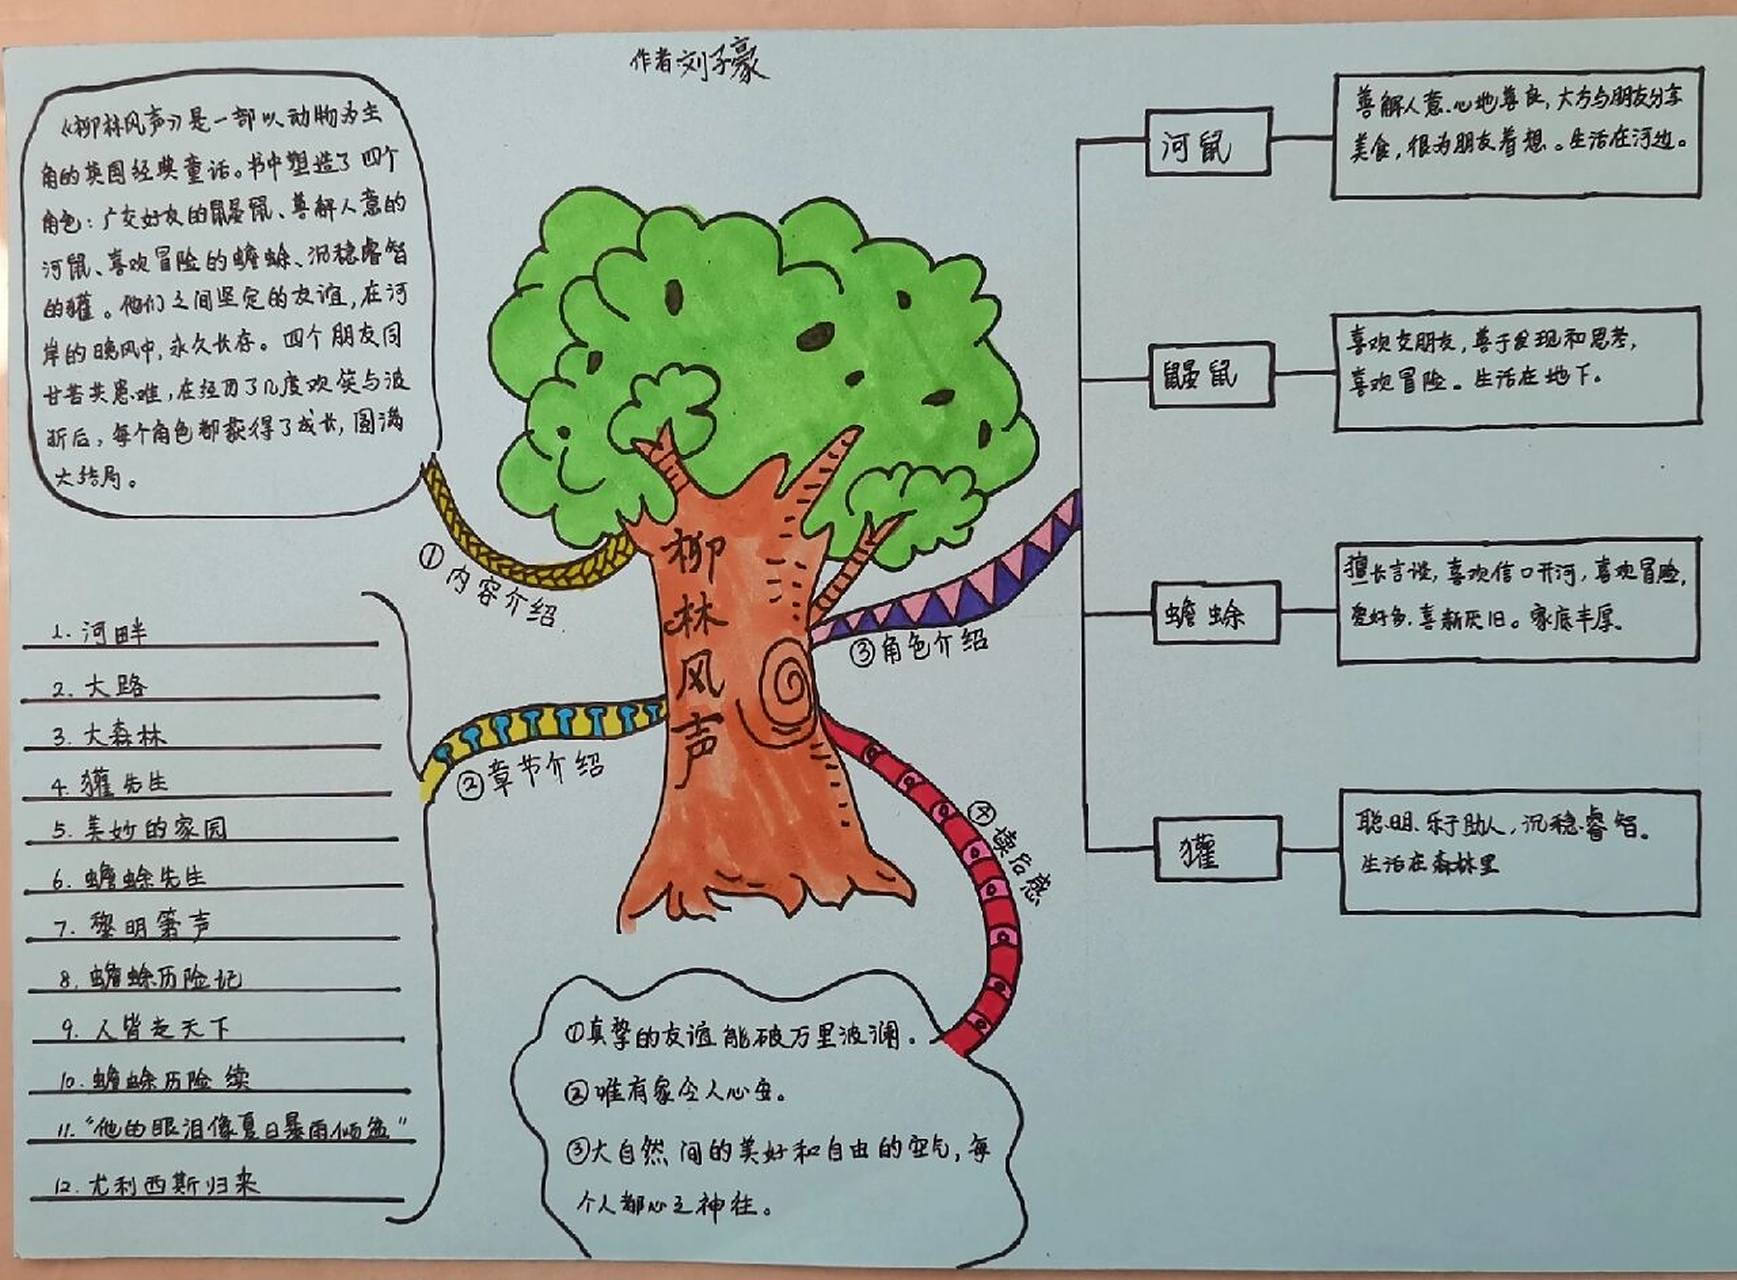 作者:刘子豪
《柳林风声》是一部以动物为主
角的英国经典童话。书中塑造了四个
角色:广交好友的鼹鼠、善解人意的
河鼠、喜欢冒险的蟾蜍、沉稳睿智
的獾。他们之间坚定的友谊,在河
岸的晚风中,永久长存。四个朋友同
甘苦共患难,在经历了几度欢笑与波
折后,每个角色都获得了成长,圆满
大结局。
①内容介绍
1. 河畔
2. 大路
3. 大森林
4. 獾先生
5. 美妙的家园
6. 蟾蜍先生
7. 黎明箫声
8. 蟾蜍历险记
9. 人皆走天下
10. 蟾蜍历险续
11. “他的眼泪像夏日暴雨倾盆”
12. 尤利西斯归来
②章节介绍
柳
林
风
声
③角色介绍
河鼠
善解人意.心地善良,大方与朋友分享
美食,很为朋友着想。生活在河边。
鼹鼠
喜欢交朋友,善于发现和思考,
喜欢冒险。生活在地下。
蟾蜍
擅长言谈,喜欢信口开河,喜欢冒险,
爱好多.喜新厌旧。家底丰厚。
獾
聪明.乐于助人,沉稳.睿智。
生活在森林里
④读后感
①真挚的友谊能破万里波澜。
②唯有家令人心安。
③大自然间的美好和自由的空气,每
个人都心之神往。